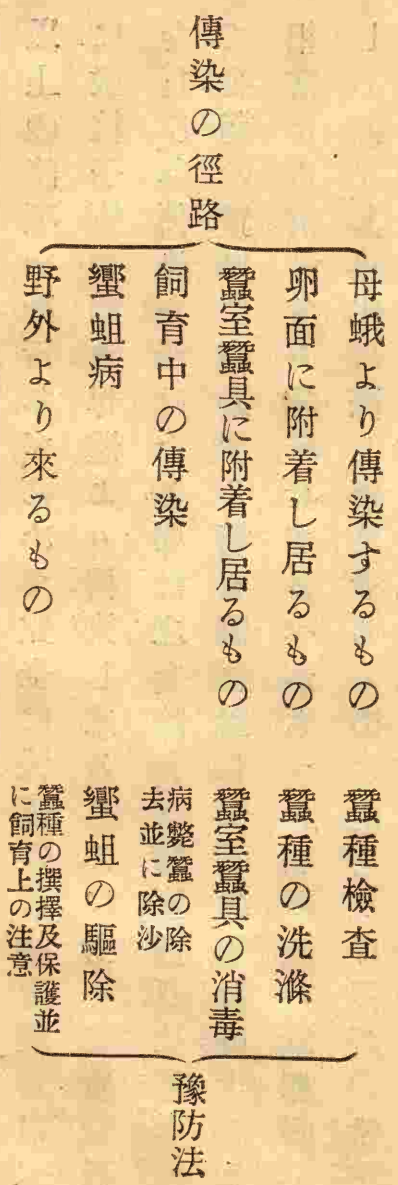 傳染の徑路
母蛾より傳染するもの
卵面に附着し居るもの
蠶室蠶具に附着し居るもの
飼育中の傳染
蠁蛆病
野外より來るもの
蠶種檢査
蠶種の洗滌
蠶室蠶具の消毒
病斃蠶の除
去並に除沙
蠁蛆の驅除
蠶種の撰擇及保護並
に飼育上の注意
豫防法